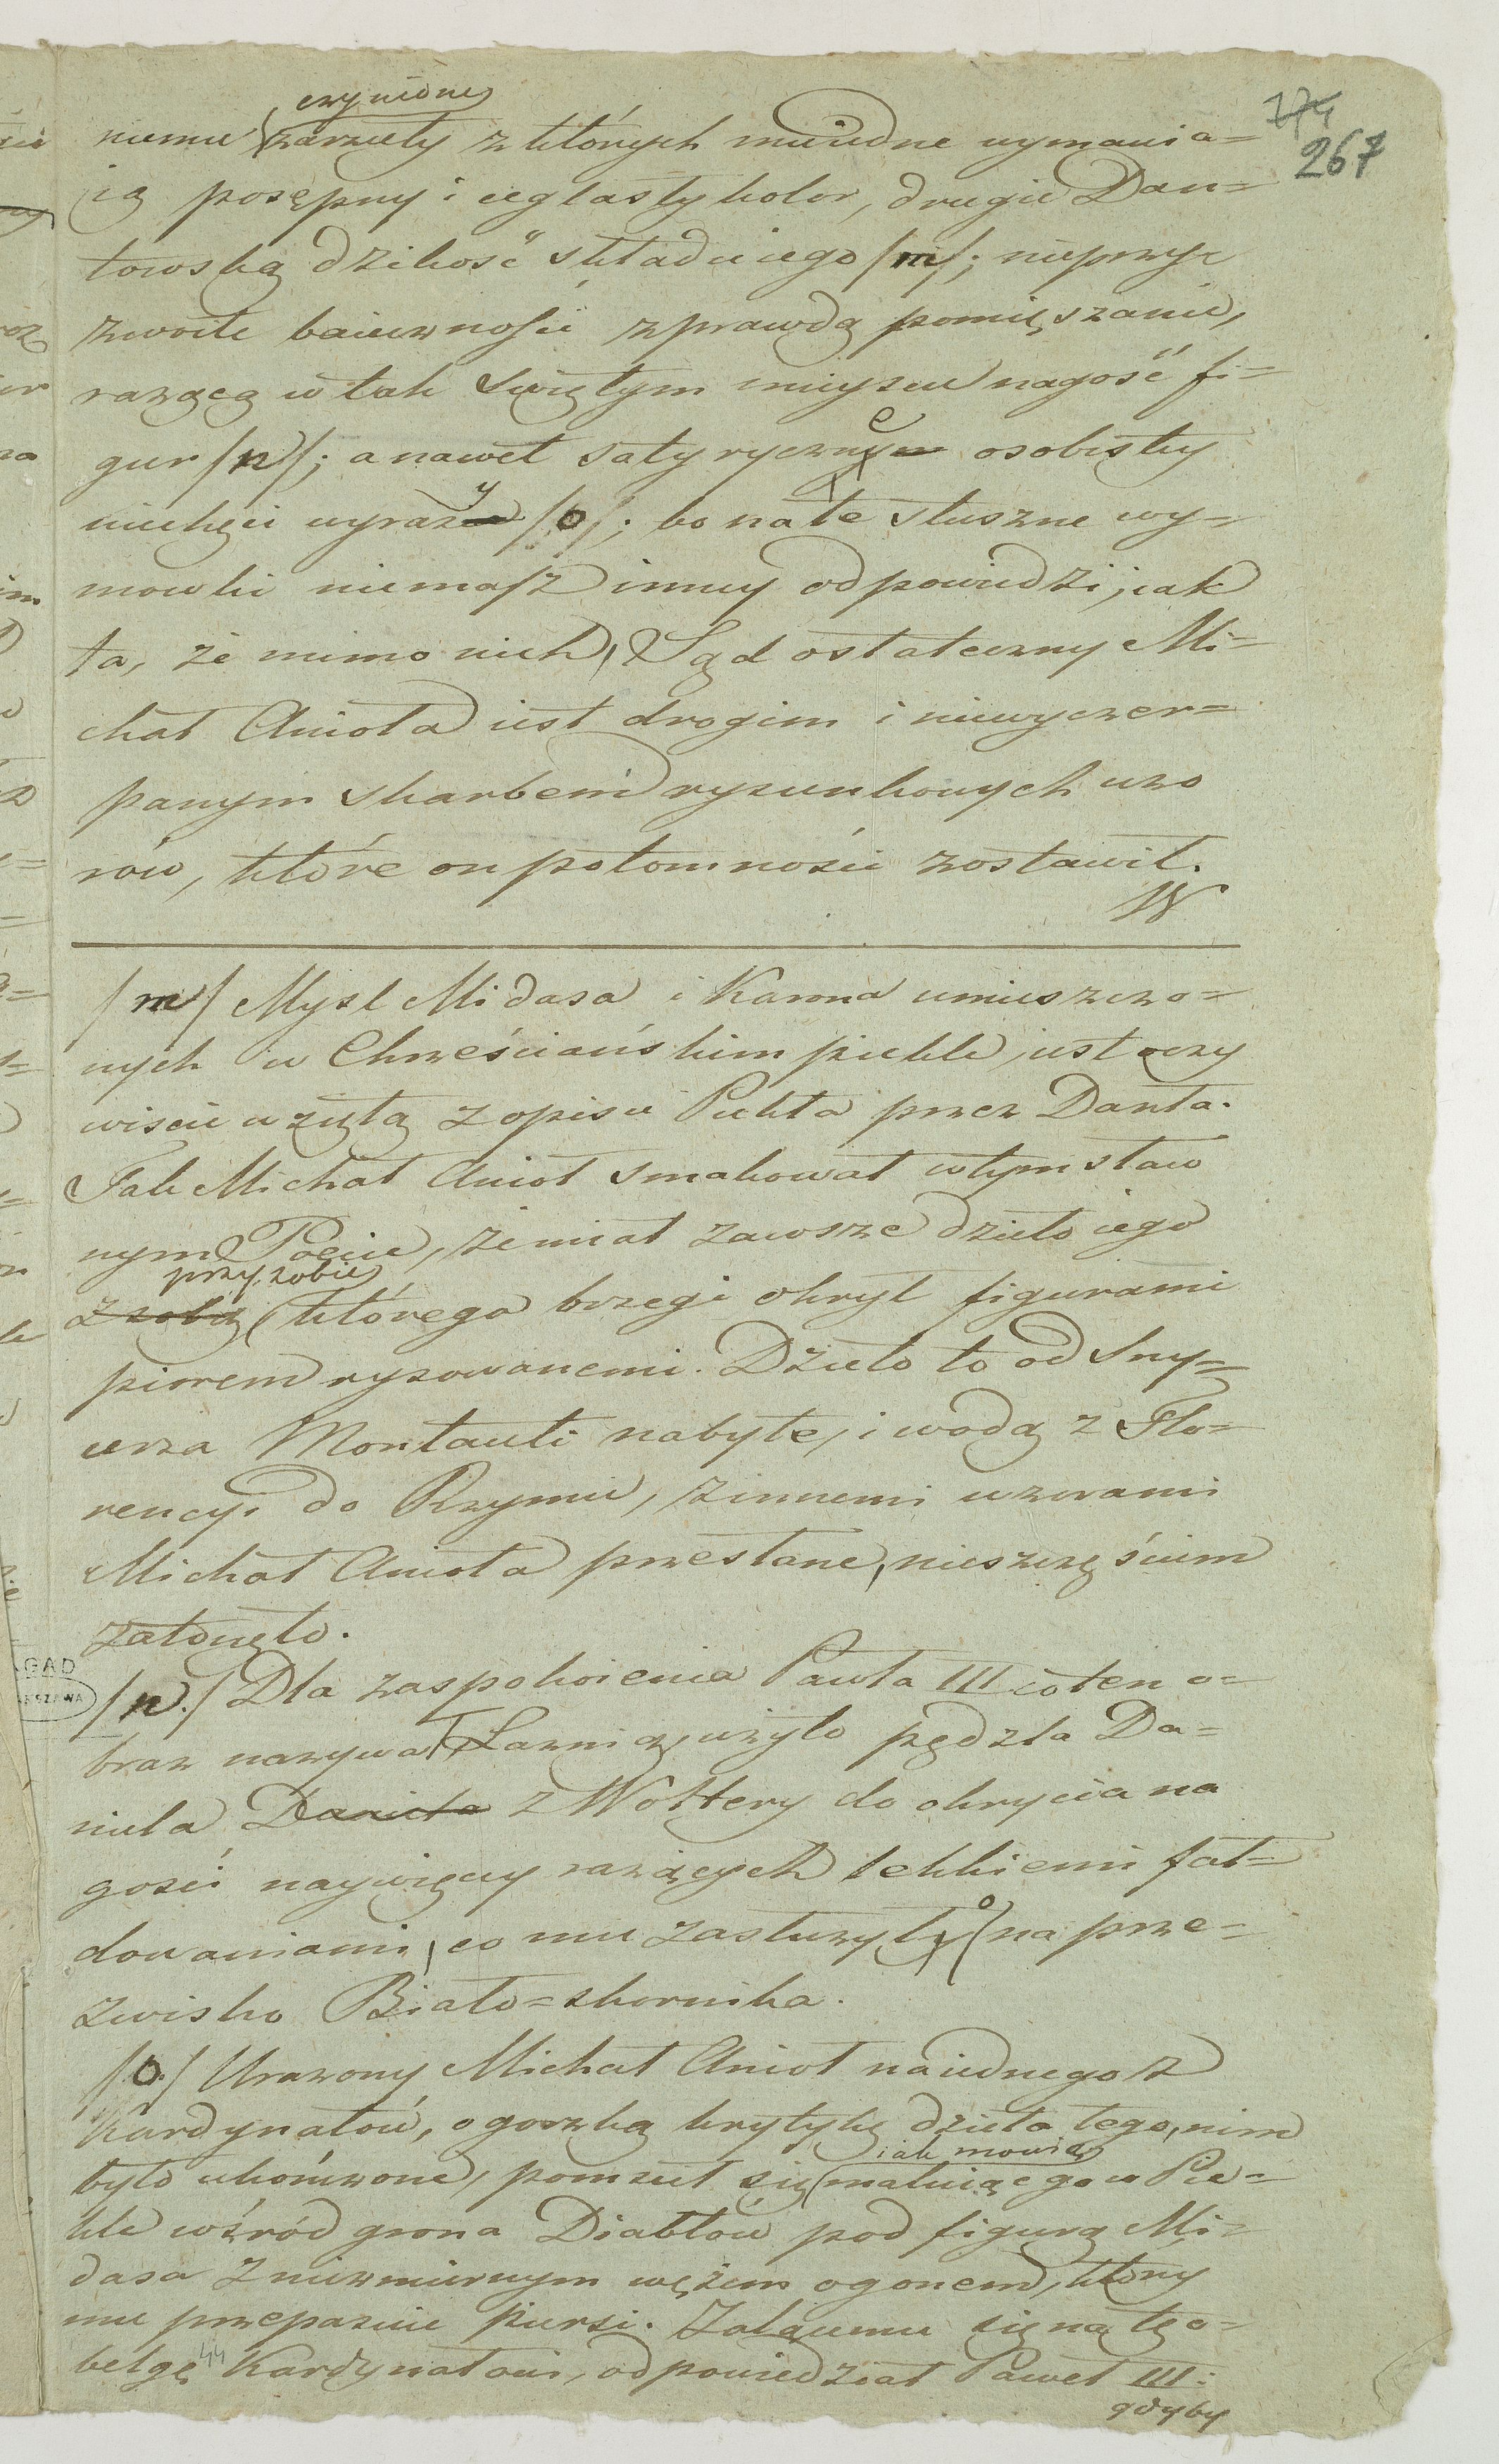 174
267
czynione
niemu zarzuty z których niiedne wymawia=
ią posępny i ceglasty kolor, drugie Dan=
towską dzikość składu iego /m/; nieprzy=
zwoite baieczności z prawdą pomięszanie,
rażącą w tak świętym mieyscu nagość fi=
gur /n/; a nawet satyryczne osobistey
niechęci wyrazy /o/; bo na te słuszne wy=
mowki niemasz inney odpowiedzi, iak
ta, że mimo nich, Sąd ostateczny Mi=
chał Anioła iest drogim i niewyczer=
panym skarbem rysunkowych wzo
rów, które on potomności zostawił.
W
/m/ Mysl Midasa i Karona umieszczo=
nych w Chrześciańskim piekle, iest oczy
wiscie wziętą z opisu Piekła przez Danta.
Tak Michał Anioł smakował w tym sław
nym Poecie, że miał zawsze dzieło iego
przy sobie
z sobą którego brzegi okrył figurami
piorem rysowanemi. Dzieło to od Sny=
cerza Montauti nabyte, i wodą z Flo=
rencyi do Rzymu, z innemi wzorami
Michał Anioła przesłane, nieszczęściem
zatonęło.
/n./ Dla zaspokoienia Pawła III co ten o=
braz nazywał Łaznią, użyto pędzla Da=
niela Daniela z Woltery do okrycia na
gości naywięcey rażących lekkiemi fał=
dowaniami, co mu zasłużyło na prze=
zwisko Biało=skornika.
/o./ Urażony Michał Anioł na iednego z
Kardynałów, o gorzką krytykę dzieła tego, nim
iak mowią
było ukończone, pomścił się malując go w Pie=
kle wśród grona Diabłów pod figurą Mi=
dasa z niezmiernym wężem ogonem, który
mu przepasuie piersi. Żalącemu się na tę o=
belgę Kardynałowi, odpowiedział Paweł III:
gdyby
44
AGAD
WARSZAWA